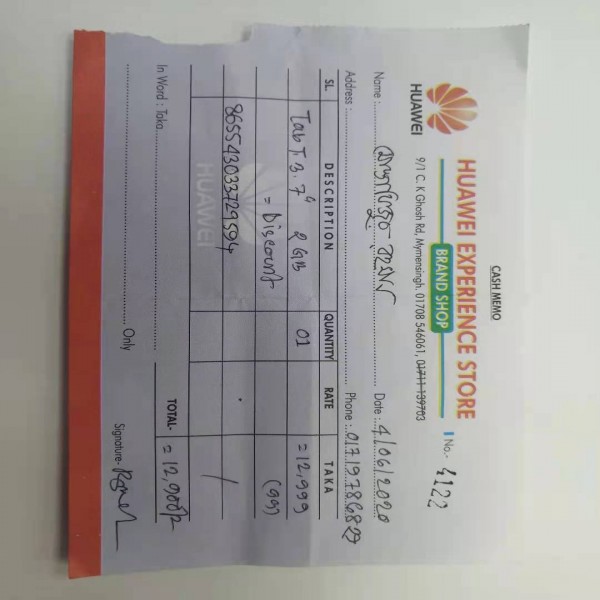 CASH MEMO
HUAWEI
HUAWEI EXPERIENCE STORE
BRAND SHOP
9/1 C. K Ghosh Rd, Mymensingh. 01708 546061, 01711 139703
No.- 4122
Name : Date : 4/06/2020
Address : Phone :
SL. DESCRIPTION QUANTITY RATE TAKA
Tab T3. 7" 2 GB 01 = 12,999
= Discount (99)
865543033729594 /
HUAWEI
TOTAL- = 12,900/-
In Word : Taka Only
Signature-